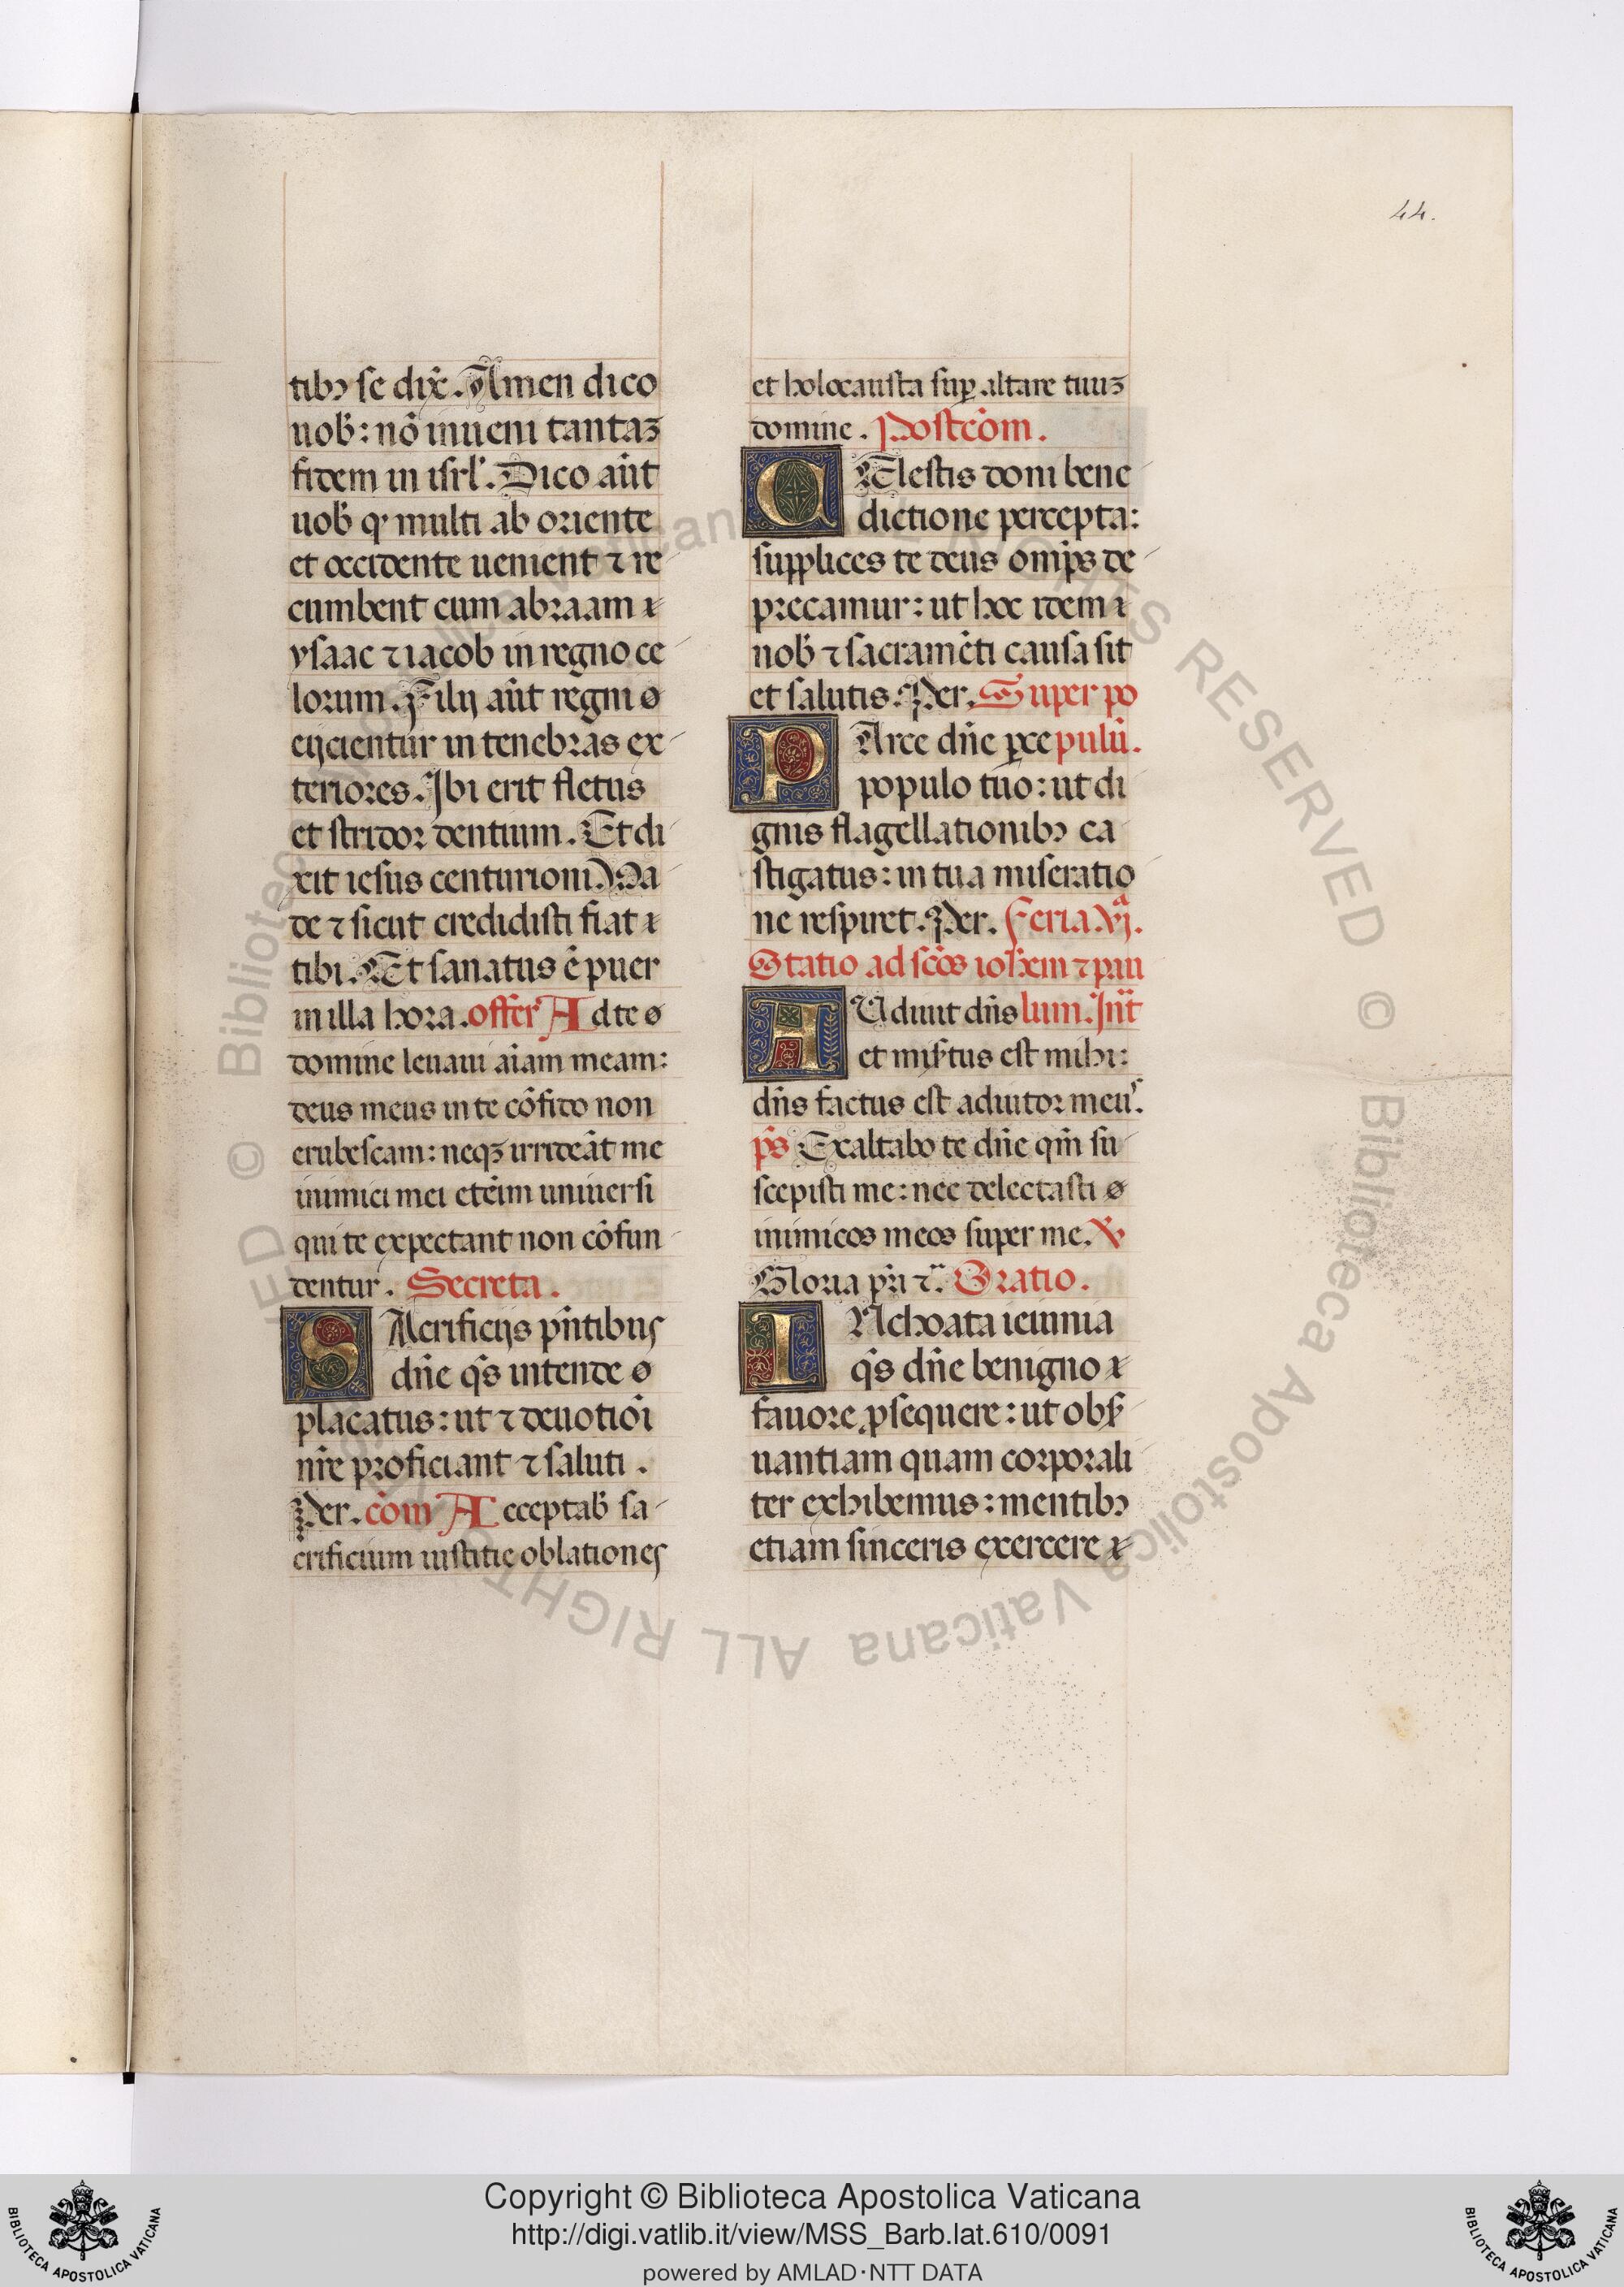 44.
tibꝰ se dix̄. Amen dico
uob̄: nō inueni tantaꝫ
fidem in isrl̄. Dico aūt
uob̄ qꝰ multi ab oriente
et occidente uenient ⁊ re
cumbent cum abraam
ysaac ⁊ iacob in regno ce
lorum. Filij aūt regni
eijcientur in tenebras ex
teriores. Ibi erit fletus
et stridor dentium. Et di
xit iesus centurioni. Va
de ⁊ sicut credidisti fiat
tibi. Et sanatus ē puer
in illa hora. offer̄ Ad te
domine leuaui aīam meam:
deus meus in te cōfido non
erubescam: neqꝫ irrideāt me
inimici mei etēim uniuersi
qui te expectant non cōfun
dentur. Secreta.
SAcrificijs pn̄tibus
dn̄e qs̄ intende
placatus: ut ⁊ deuotiōi
nr̄e proficiant ⁊ saluti.
Per. cōm Acceptab̄ sa
crificium iustitie oblationes
et holocausta suꝑ altare tuuꝫ
domine. Postcōm.
CElestis doni bene
dictione percepta:
supplices te deus omp̄s de
precamur: ut hoc idem
nob̄ ⁊ sacramēti causa sit
et salutis. Per. Super po
PArce dn̄e ꝑce pulū.
populo tuo: ut di
gnis flagellationibꝰ ca
stigatus: in tua miseratio
ne respiret. Per. Feria .vjͣ.
Statio ad scōs ioħem ⁊ pau
AUdiuit dn̄s lum. Int̄
et mis̄tus est mihi:
dn̄s factus est adiutor meuˢ.
ps̄ Exaltabo te dn̄e qm̄ su
scepisti me: nec delectasti
inimicos meos super me. ℣
Gloria pr̄i ⁊̄. Oratio.
INchoata ieiunia
qs̄ dn̄e benigno
fauore ꝓsequere: ut obs̄
uantiam quam corporali
ter exhibemus: mentibꝰ
etiam sinceris exercere
Copyright © Biblioteca Apostolica Vaticana
http://digi.vatlib.it/view/MSS_Barb.lat.610/0091
powered by AMLAD·NTT DATA
BIBLIOTECA APOSTOLICA VATICANA
BIBLIOTECA APOSTOLICA VATICANA